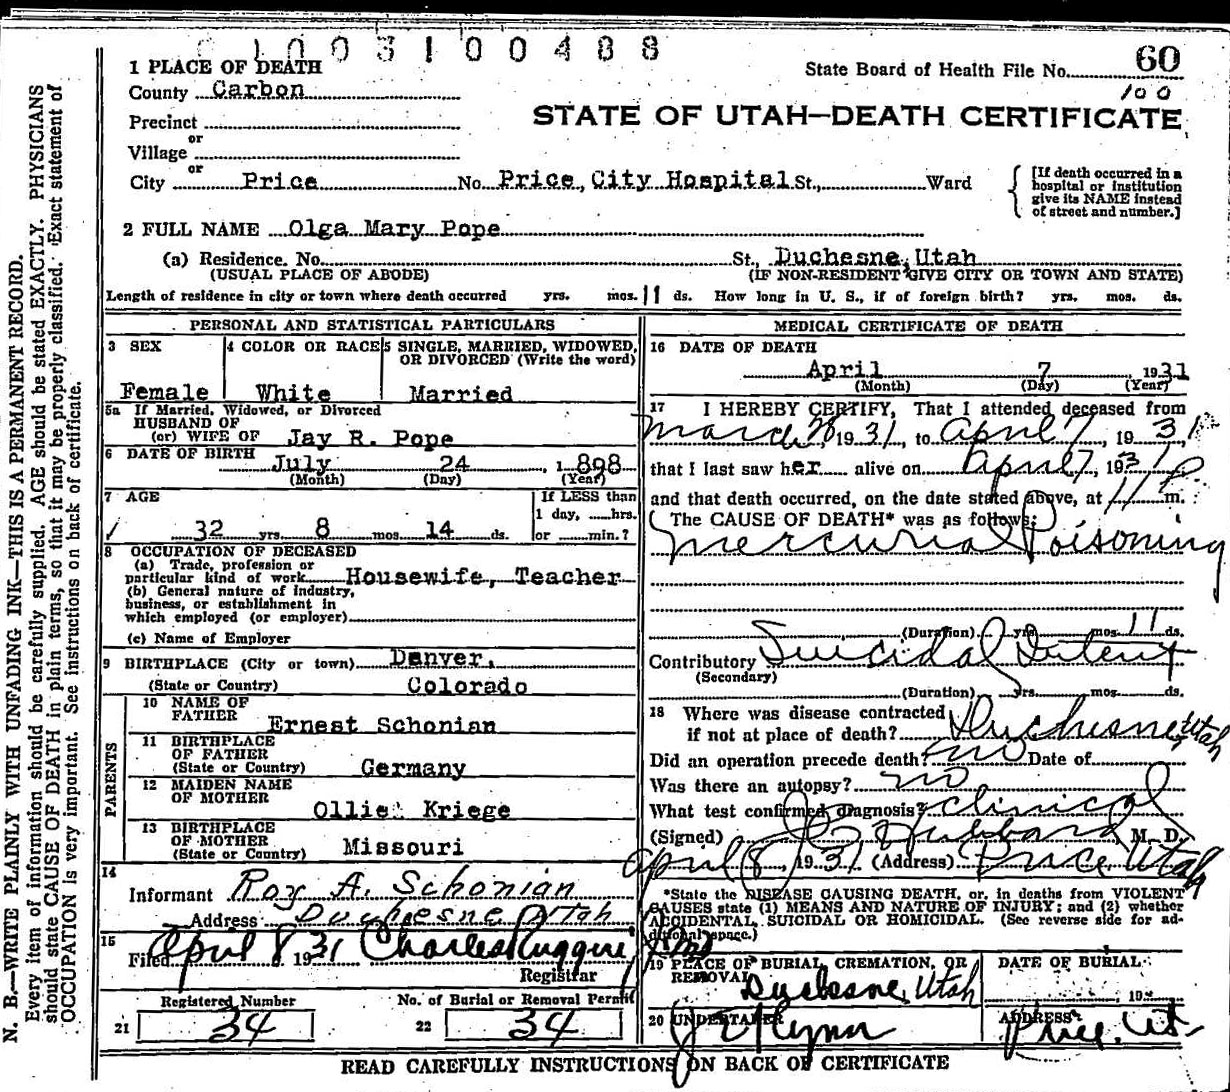 1003100488
60
State Board of Health File No.
100
1 PLACE OF DEATH
County Carbon
STATE OF UTAH—DEATH CERTIFICATE
Precinct
or
Village
or
City Price No. Price, City Hospital St., Ward
[If death occurred in a
hospital or institution
give its NAME instead
of street and number.]
2 FULL NAME Olga Mary Pope
(a) Residence. No. St., Duchesne, Utah
(USUAL PLACE OF ABODE) (IF NON-RESIDENT GIVE CITY OR TOWN AND STATE)
Length of residence in city or town where death occurred yrs. mos. 11 ds. How long in U. S., if of foreign birth? yrs. mos. ds.
PERSONAL AND STATISTICAL PARTICULARS
3 SEX 4 COLOR OR RACE 5 SINGLE, MARRIED, WIDOWED,
OR DIVORCED (Write the word)
Female White Married
5a If Married, Widowed, or Divorced
HUSBAND OF
(or) WIFE OF Jay R. Pope
6 DATE OF BIRTH
July 24, 1898
(Month) (Day) (Year)
7 AGE If LESS than
1 day, hrs.
32 yrs. 8 mos. 14 ds. or min.?
8 OCCUPATION OF DECEASED
(a) Trade, profession or
particular kind of work Housewife, Teacher
(b) General nature of industry,
business, or establishment in
which employed (or employer)
(c) Name of Employer
9 BIRTHPLACE (City or town) Denver,
(State or Country) Colorado
PARENTS
10 NAME OF
FATHER Ernest Schonian
11 BIRTHPLACE
OF FATHER
(State or Country) Germany
12 MAIDEN NAME
OF MOTHER Ollie Kriege
13 BIRTHPLACE
OF MOTHER
(State or Country) Missouri
14
Informant Roy A. Schonian
Address Duchesne Utah
15
Filed April 8 1931 Charles Ruggeri
Registrar
Registered Number No. of Burial or Removal Permit
21 34 22 34
MEDICAL CERTIFICATE OF DEATH
16 DATE OF DEATH
April 7 1931
(Month) (Day) (Year)
17 I HEREBY CERTIFY, That I attended deceased from
March 28 1931, to April 7, 1931,
that I last saw her alive on April 7, 1931
and that death occurred, on the date stated above, at 11 P m.
The CAUSE OF DEATH* was as follows:
Mercurial Poisoning
(Duration) yrs. mos. 11 ds.
Contributory Suicidal Intent
(Secondary)
(Duration) yrs. mos. ds.
18 Where was disease contracted
if not at place of death? Duchesne, Utah
Did an operation precede death? no Date of
Was there an autopsy? no
What test confirmed diagnosis? clinical
(Signed) Hubbard M. D.
April 8, 1931 (Address) Price Utah
*State the DISEASE CAUSING DEATH, or, in deaths from VIOLENT
CAUSES state (1) MEANS AND NATURE OF INJURY; and (2) whether
ACCIDENTAL, SUICIDAL OR HOMICIDAL. (See reverse side for ad-
ditional space.)
19 PLACE OF BURIAL, CREMATION, OR
REMOVAL
Duchesne, Utah
DATE OF BURIAL
19
20 UNDERTAKER ADDRESS
J E Flynn Price, Ut.
READ CAREFULLY INSTRUCTIONS ON BACK OF CERTIFICATE
N. B.—WRITE PLAINLY WITH UNFADING INK—THIS IS A PERMANENT RECORD.
Every item of information should be carefully supplied. AGE should be stated EXACTLY. PHYSICIANS
should state CAUSE OF DEATH in plain terms, so that it may be properly classified. Exact statement of
OCCUPATION is very important. See instructions on back of certificate.